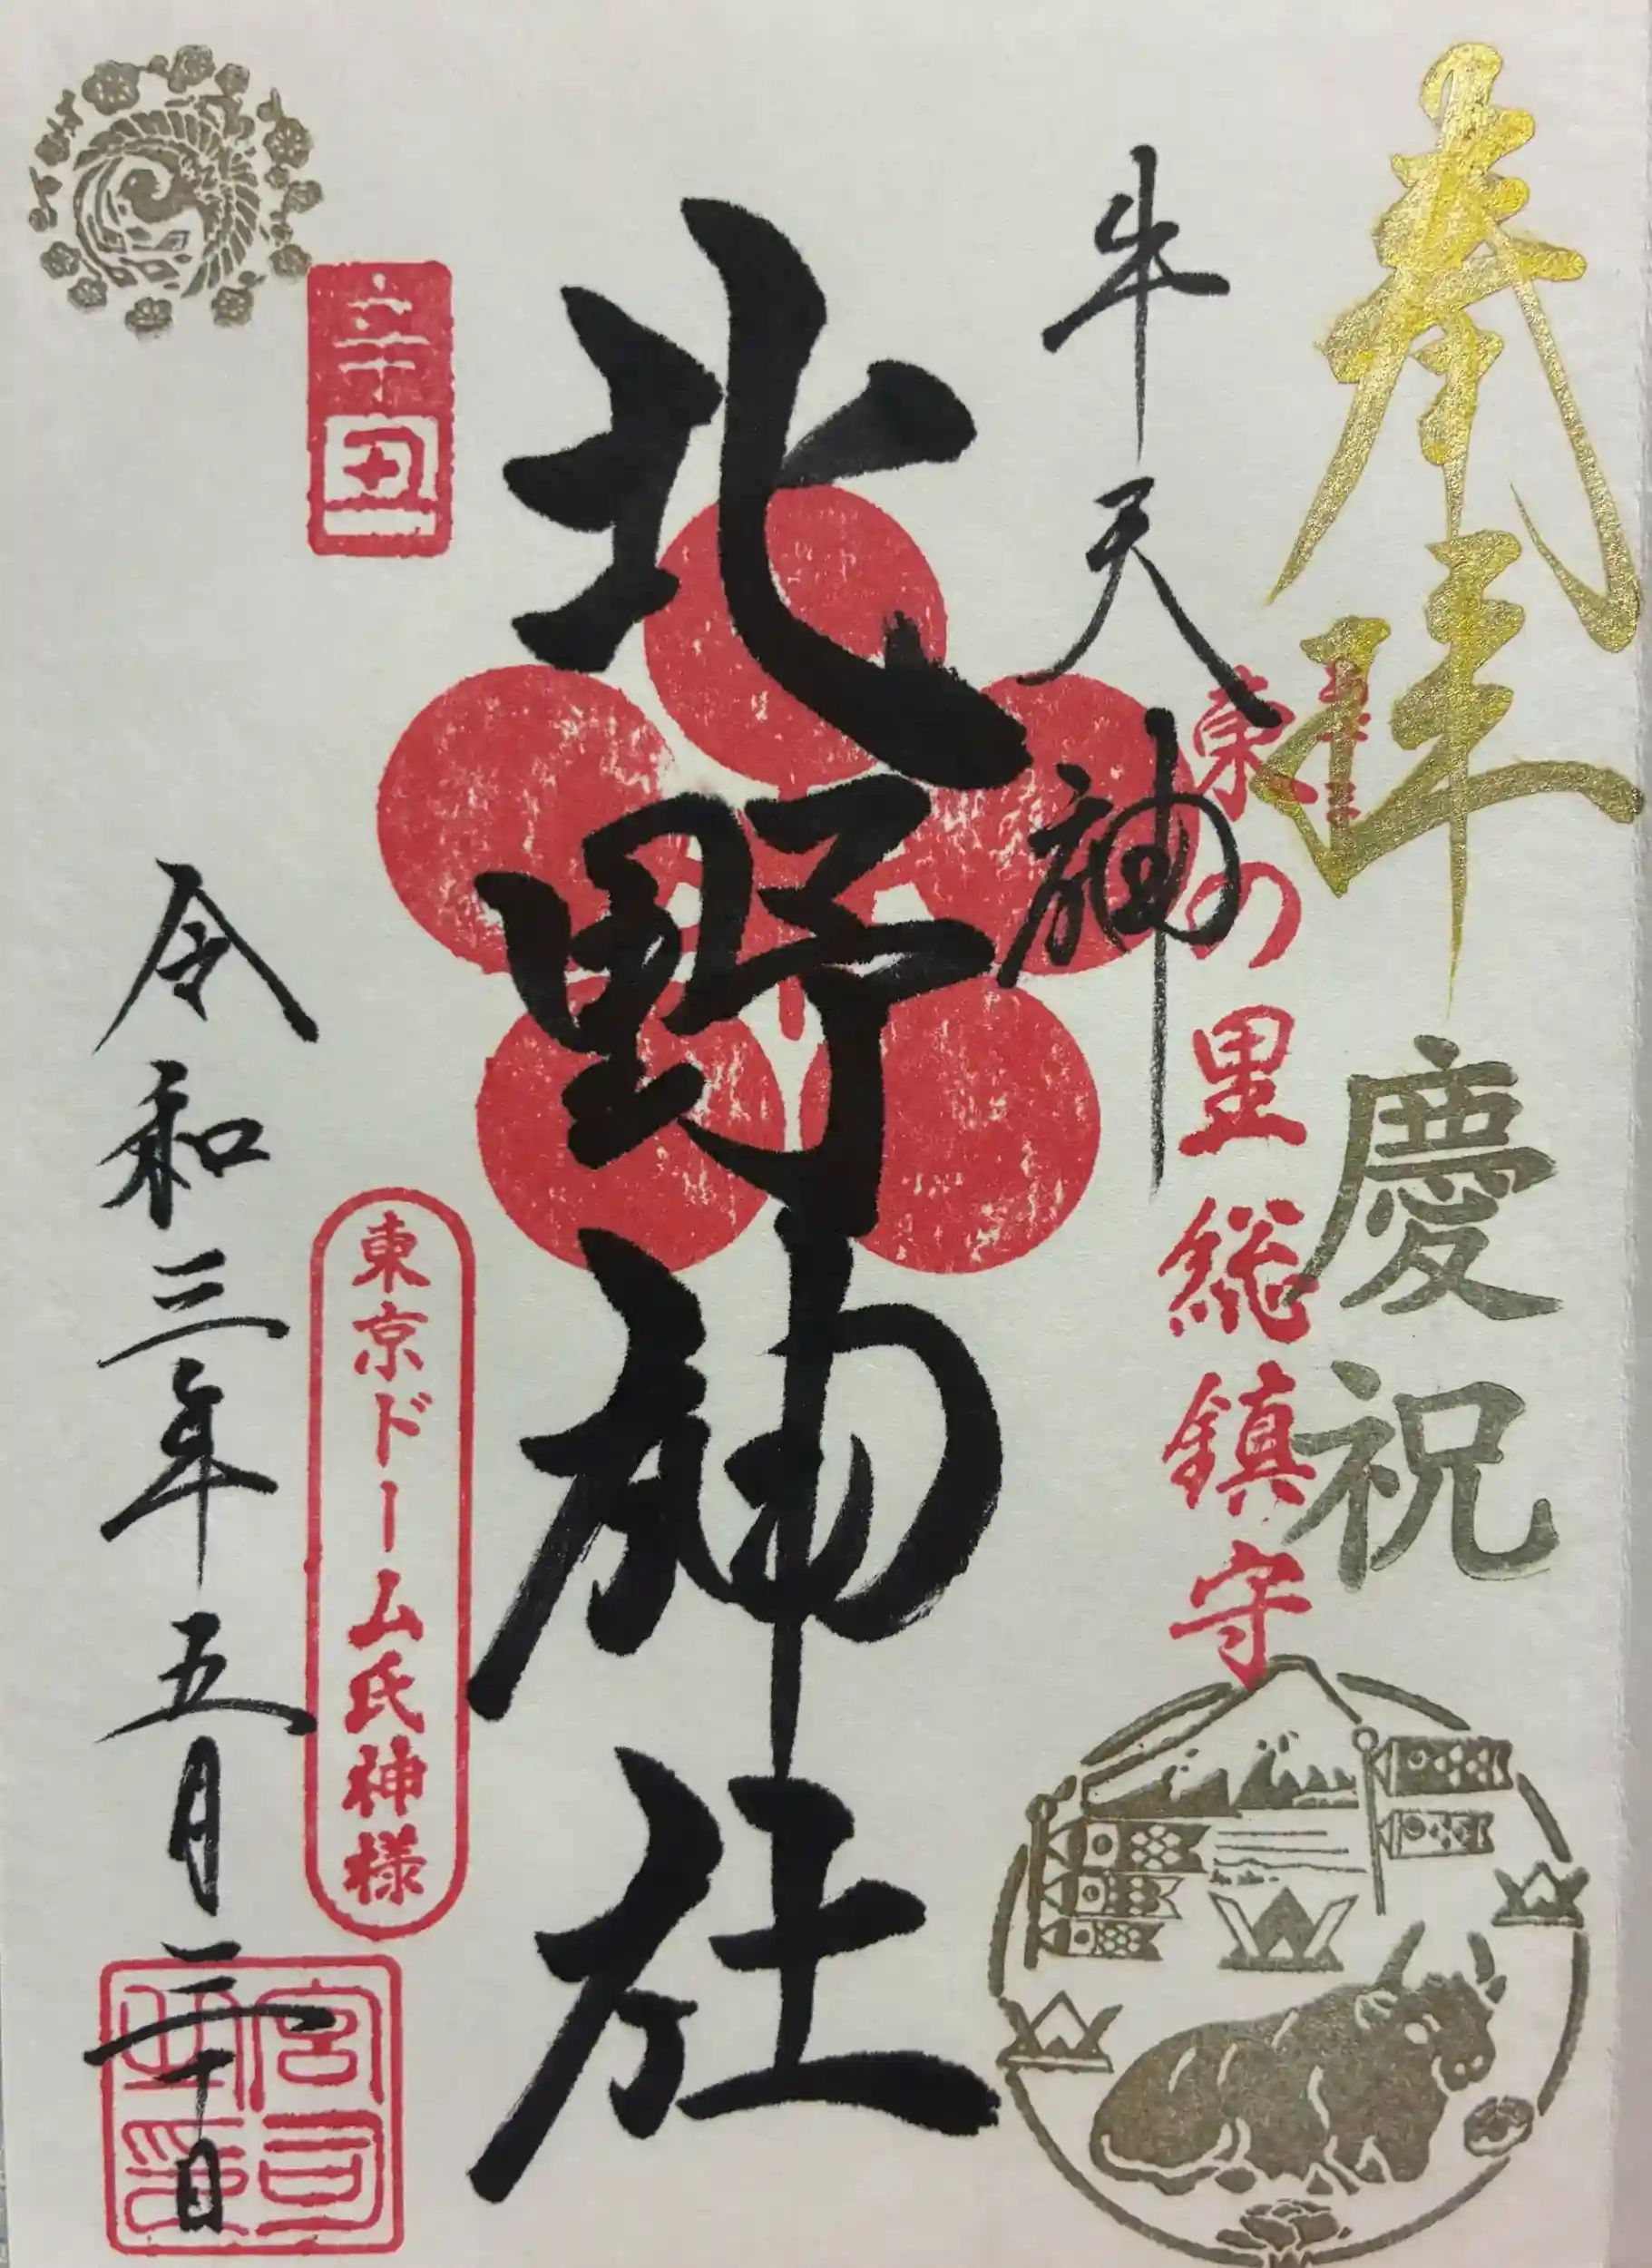 奉拝
慶祝
東の里総鎮守
牛天神
北野神社
辛丑
東京ドーム氏神様
令和三年五月三十日
宮司之印